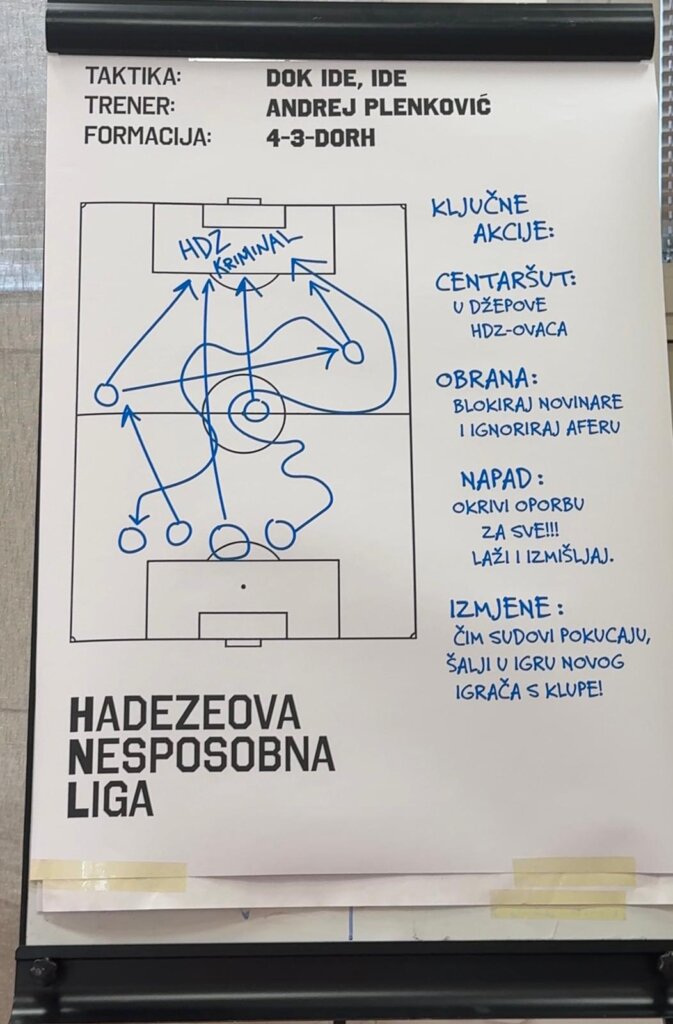 TAKTIKA: DOK IDE, IDE
TRENER: ANDREJ PLENKOVIĆ
FORMACIJA: 4-3-DORH
HDZ
KRIMINAL
KLJUČNE
AKCIJE:
CENTARŠUT:
U DŽEPOVE
HDZ-OVACA
OBRANA:
BLOKIRAJ NOVINARE
I IGNORIRAJ AFERU
NAPAD:
OKRIVI OPORBU
ZA SVE!!!
LAŽI I IZMIŠLJAJ.
IZMJENE:
ČIM SUDOVI POKUCAJU,
ŠALJI U IGRU NOVOG
IGRAČA S KLUPE!
HADEZEOVA
NESPOSOBNA
LIGA